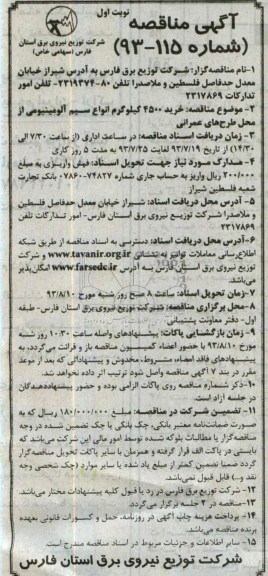 نوبت اول
آگهی مناقصه
(شماره ۱۱۵-۹۳)
شرکت توزیع نیروی برق استان
فارس (سهامی خاص)
۱-نام مناقصه‌گزار: شرکت توزیع برق فارس به آدرس شیراز خیابان
معدل حدفاصل فلسطین و ملاصدرا تلفن ۸۰-۲۳۱۹۳۷۴ - تلفن امور
تدارکات ۲۳۱۷۸۶۹
۲- موضوع مناقصه: خرید ۴۵۰۰ کیلوگرم انواع سیم آلومینیومی از
محل طرح‌های عمرانی
۳- زمان دریافت اسناد مناقصه: در ساعت اداری (از ساعت ۷/۳۰ الی
۱۴/۳۰) از تاریخ ۹۳/۷/۱۹ لغایت ۹۳/۷/۲۵ به مدت ۵ روز کاری
۴- مدارک مورد نیاز جهت تحویل اسناد: فیش واریزی به مبلغ
۲۰۰/۰۰۰ ریال واریز به حساب جاری شماره ۷۴۸۲۷-۰۷۸۶۰ بانک تجارت
شعبه فلسطین شیراز
۵- آدرس محل دریافت اسناد: شیراز خیابان معدل حدفاصل فلسطین
و ملاصدرا شرکت توزیع نیروی برق استان فارس- امور تدارکات تلفن
۲۳۱۷۸۶۹
۶-آدرس محل دریافت اسناد: دسترسی به اسناد مناقصه از طریق شبکه
اطلاع‌رسانی معاملات توانیر به نشانی www.tavanir.org.ir و شرکت
توزیع نیروی برق استان فارس به آدرس www.farsedc.ir امکان‌پذیر
می‌باشد.
۷-زمان تحویل اسناد: ساعت ۸ صبح روز شنبه مورخ ۹۳/۸/۱۰
۸- محل برگزاری مناقصه: شرکت توزیع نیروی برق استان فارس- طبقه
اول- دفتر معاونت پشتیبانی
۹- زمان بازگشایی پاکات: پیشنهادهای واصله ساعت ۱۰:۳۰ روز شنبه
مورخ ۹۳/۸/۱۰ با حضور اعضاء کمیسیون مناقصه باز و قرائت می‌گردد، به
پیشنهادهای فاقد امضاء، مشروط، مخدوش و پیشنهاداتی که بعد از موعد
مقرر در بند ۷ آگهی مناقصه واصل شود ترتیب اثر داده نخواهد شد.
۱۰-ذکر شماره مناقصه روی پاکات الزامی بوده و حضور پیشنهاددهندگان
در جلسه آزاد است.
۱۱- تضمین شرکت در مناقصه: مبلغ ۱۸۰/۰۰۰/۰۰۰ ریال که به
صورت ضمانت‌نامه معتبر بانکی، چک بانکی یا چک تضمین شده در وجه
مناقصه‌گزار یا مطالبات بلوکه شده توسط امور مالی این شرکت می‌باشد که
بایستی در پاکت الف قرار گرفته و همزمان با سایر پاکات تحویل مناقصه‌گزار
گردد ضمنا تضمین کمتر از مبلغ یاد شده یا سایر موارد (چک شخصی وجه
نقد و...) قابل قبول نمی‌باشد.
۱۲- شرکت توزیع برق فارس در رد یا قبول کلیه پیشنهادات مختار می‌باشد.
۱۳- مناقصه در ۲ جلسه برگزار می‌گردد.
۱۴- پرداخت هزینه چاپ آگهی در روزنامه، حمل و کسورات قانونی بعهده
برنده مناقصه می‌باشد.
۱۵- سایر اطلاعات و جزئیات مربوط در اسناد مناقصه مندرج است.
شرکت توزیع نیروی برق استان فارس